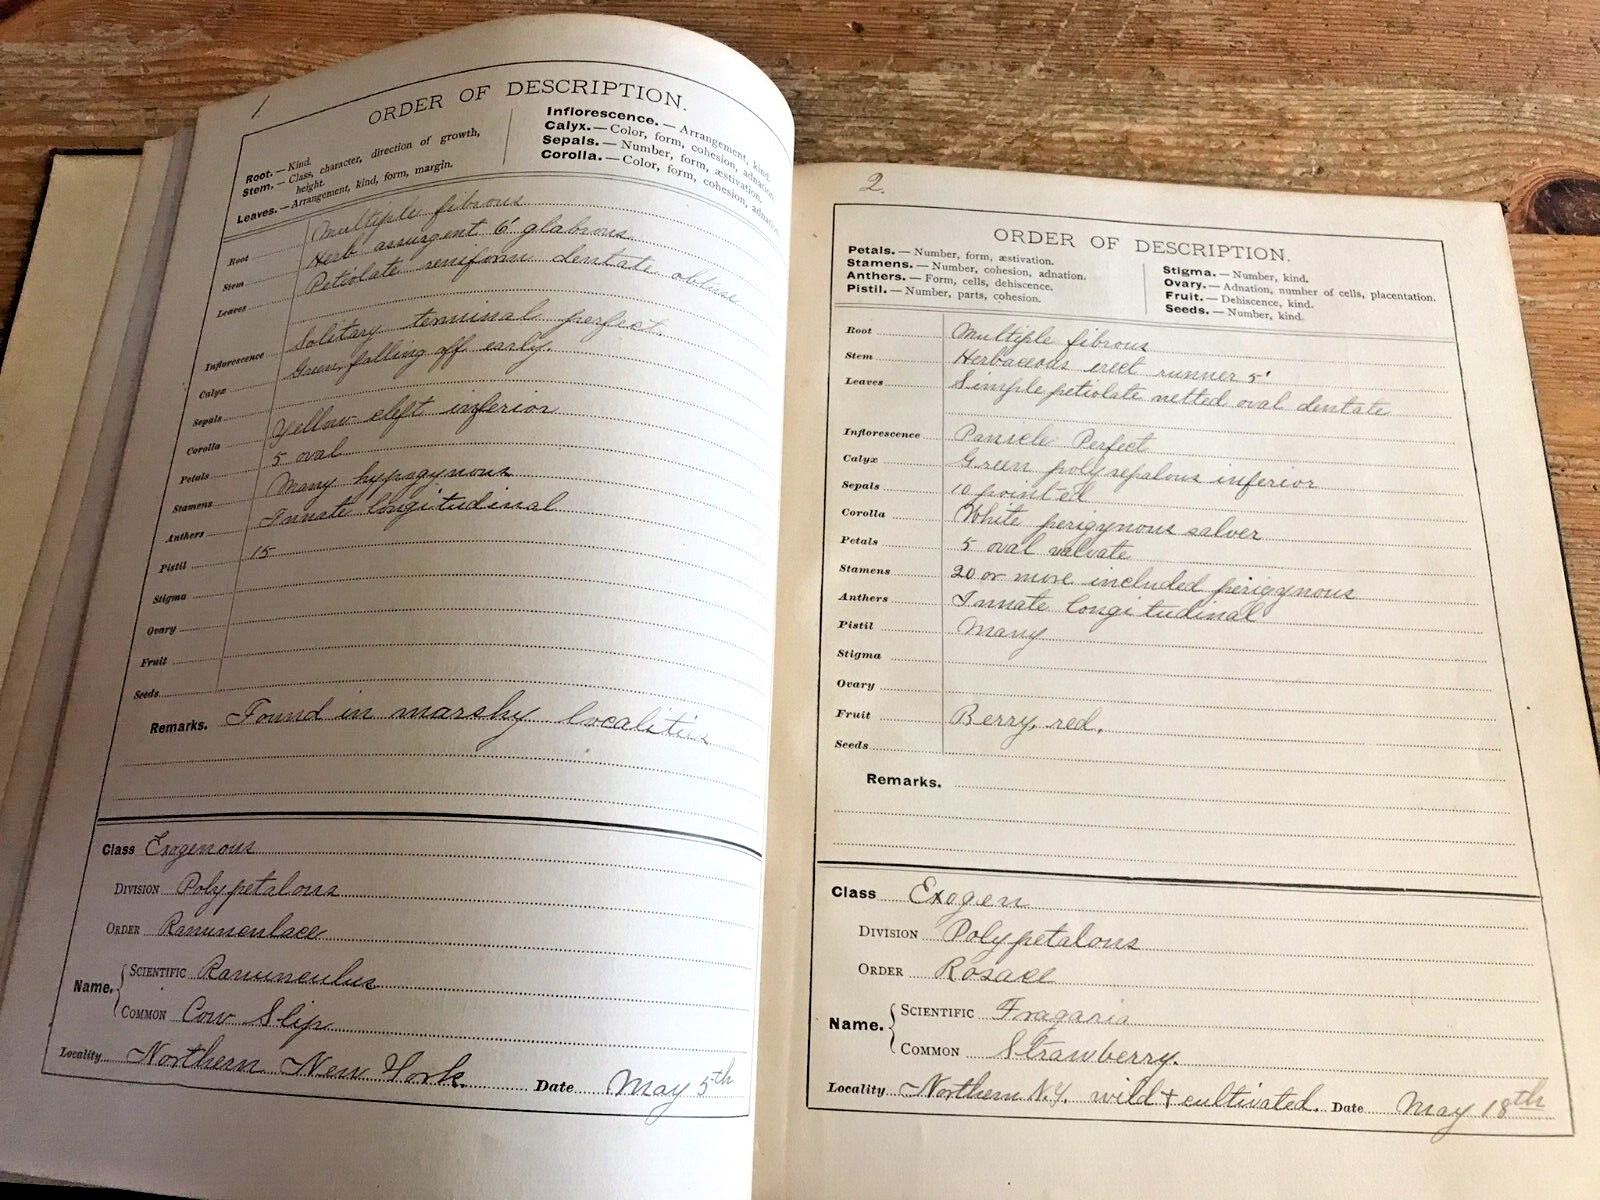 1.
ORDER OF DESCRIPTION.
Root. — Kind.
Stem. — Class, character, direction of growth,
height.
Leaves. — Arrangement, kind, form, margin.
Inflorescence. — Arrangement, kind.
Calyx. — Color, form, cohesion, adnation.
Sepals. — Number, form, æstivation.
Corolla. — Color, form, cohesion, adnation.
Root Multiple fibrous
Stem Herb assurgent 6' glabrous
Leaves Petiolate reniform dentate obtuse
Inflorescence Solitary terminal perfect.
Calyx Green, falling off early.
Sepals
Corolla Yellow cleft inferior
Petals 5 oval
Stamens Many hypogynous
Anthers Innate longitudinal
Pistil 15
Stigma
Ovary
Fruit
Seeds
Remarks. Found in marshy localities
Class Exogenous
Division Polypetalous
Order Ranunculace
Name. Scientific Ranunculus
Common Cow Slip
Locality Northern New York Date May 5th
2.
ORDER OF DESCRIPTION.
Petals. — Number, form, æstivation.
Stamens. — Number, cohesion, adnation.
Anthers. — Form, cells, dehiscence.
Pistil. — Number, parts, cohesion.
Stigma. — Number, kind.
Ovary. — Adnation, number of cells, placentation.
Fruit. — Dehiscence, kind.
Seeds. — Number, kind.
Root Multiple fibrous
Stem Herbaceous erect runner 5'
Leaves Simple petiolate netted oval dentate
Inflorescence Panicle Perfect
Calyx Green polysepalous inferior
Sepals 10 pointed
Corolla White perigynous salver
Petals 5 oval valvate
Stamens 20 or more included perigynous
Anthers Innate longitudinal
Pistil Many
Stigma
Ovary
Fruit Berry, red.
Seeds
Remarks.
Class Exogen
Division Polypetalous
Order Rosace
Name. Scientific Fragaria
Common Strawberry.
Locality Northern N.Y. wild + cultivated. Date May 18th